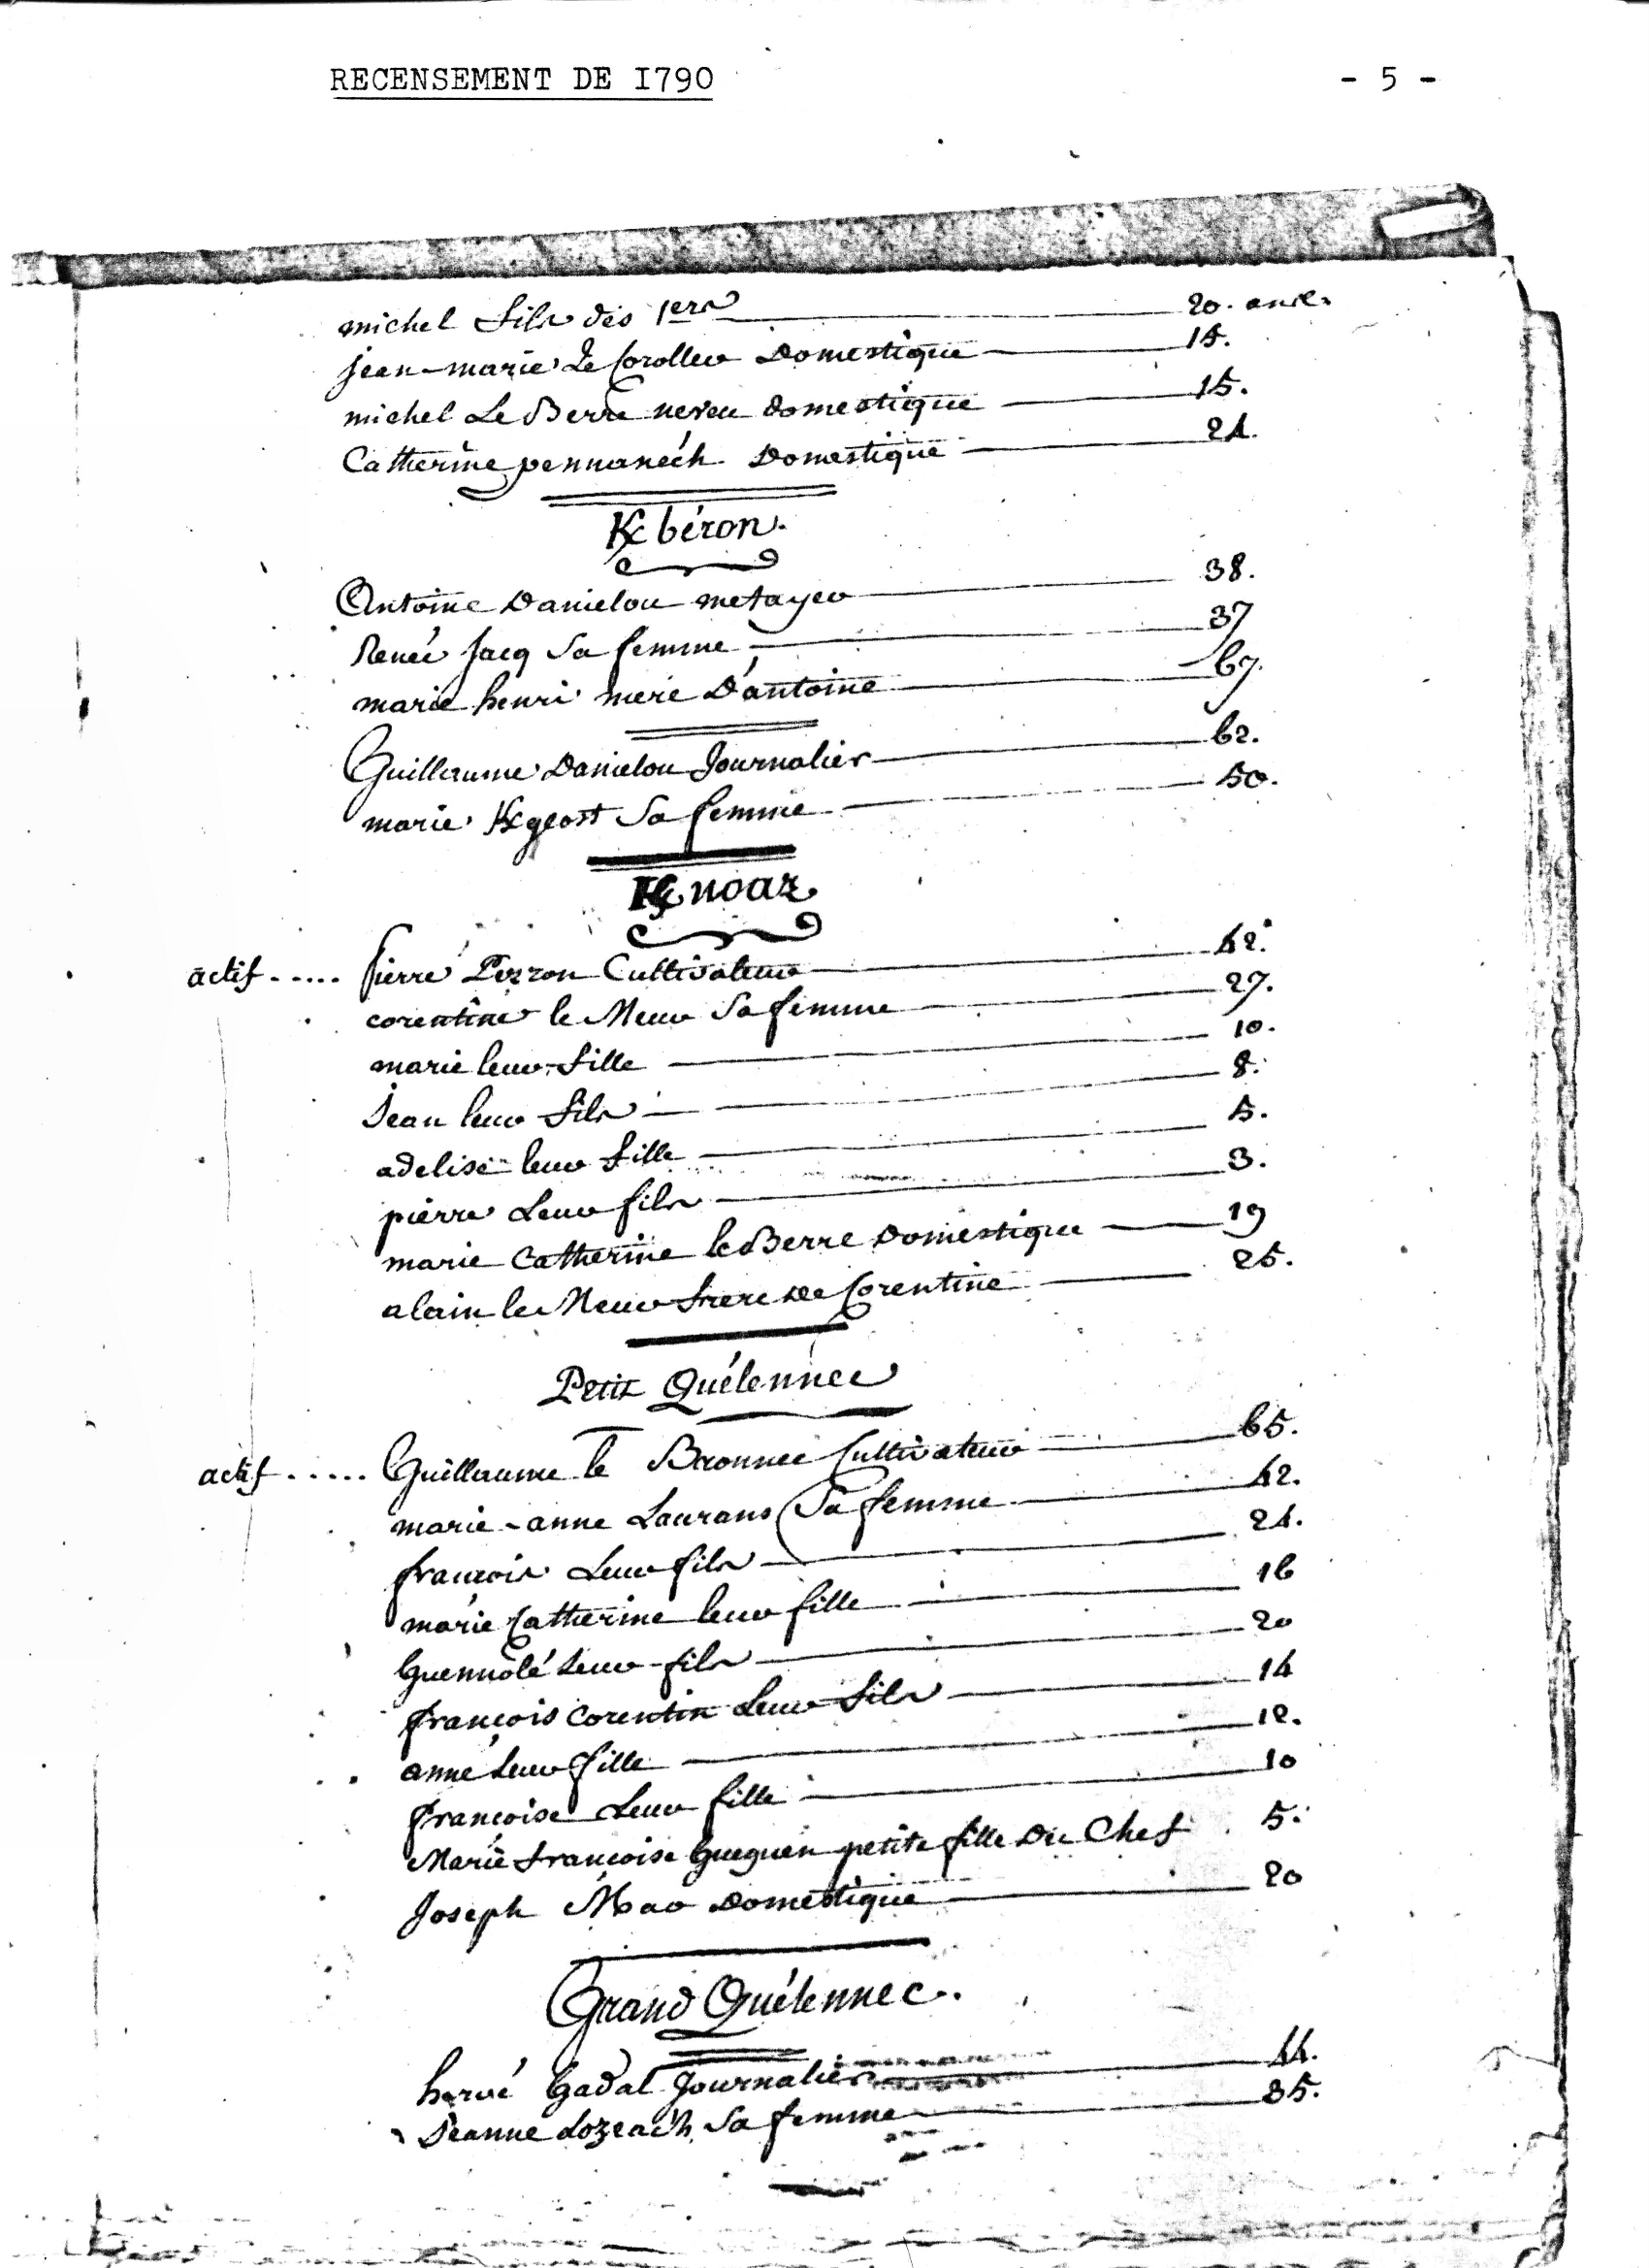 RECENSEMENT DE I790 - 5 -
michel fils des 1ers 20. ans.
jean-marie Le Corolleur Domestique 14.
michel Le Berre neveu domestique 15.
Catherine pennanéch Domestique 24.
K béron.
Antoine Danielou metayer 38.
Reneé Jacq Sa femme 37
marie henri mere D'antoine 67.
Guillaume Danielou Journalier 62.
marie Kgeost Sa femme 50.
K noaz
actif ..... Pierre Perron Cultivateur 42.
corentine le Meur Sa femme 27.
marie leur fille 10.
Jean leur fils 8.
adelise leur fille 5.
pierre Leur fils 3.
marie Catherine le Berre Domestique 19
alain le Meur frere de Corentine 25.
Petit Quélennec
actif ..... Guillaume le Bronnec Cultivateur 65.
marie-anne Laurans Sa femme 42.
francois Leur fils 24.
marie Catherine leur fille 16
Guennolé Leur fils 20
françois Corentin Leur fils 14
anne Leur fille 12.
françoise Leur fille 10
Marie francoise Gueguen petite fille Du Chef 5.
Joseph Mao Domestique 20
Grand Quélennec.
hervé Gadal Journalier 44.
Jeanne Lozeac'h Sa femme 35.